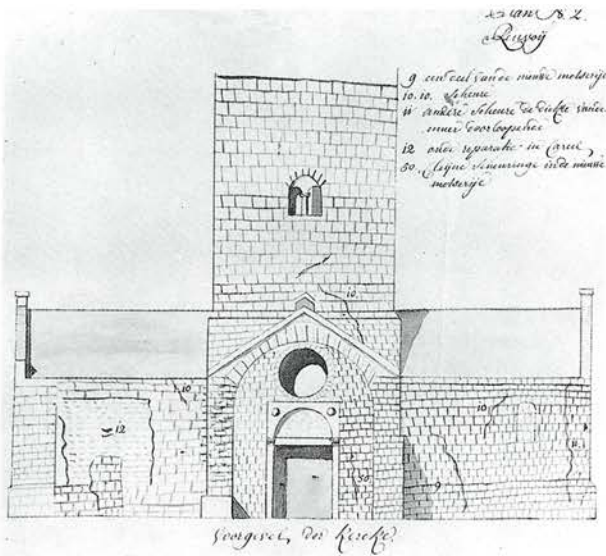 Plan N. 2.
Renvoij
9 een deel van de nieuwe metserije
10. 10. Scheure
11 andere Scheure de dickte vande
muer doorloopende
12 oude reparatie in Careil
50. Cleijne Scheuringe in de nieuwe
metserije
10
10
12
10
11
50
9
Voorgevel der Kercke